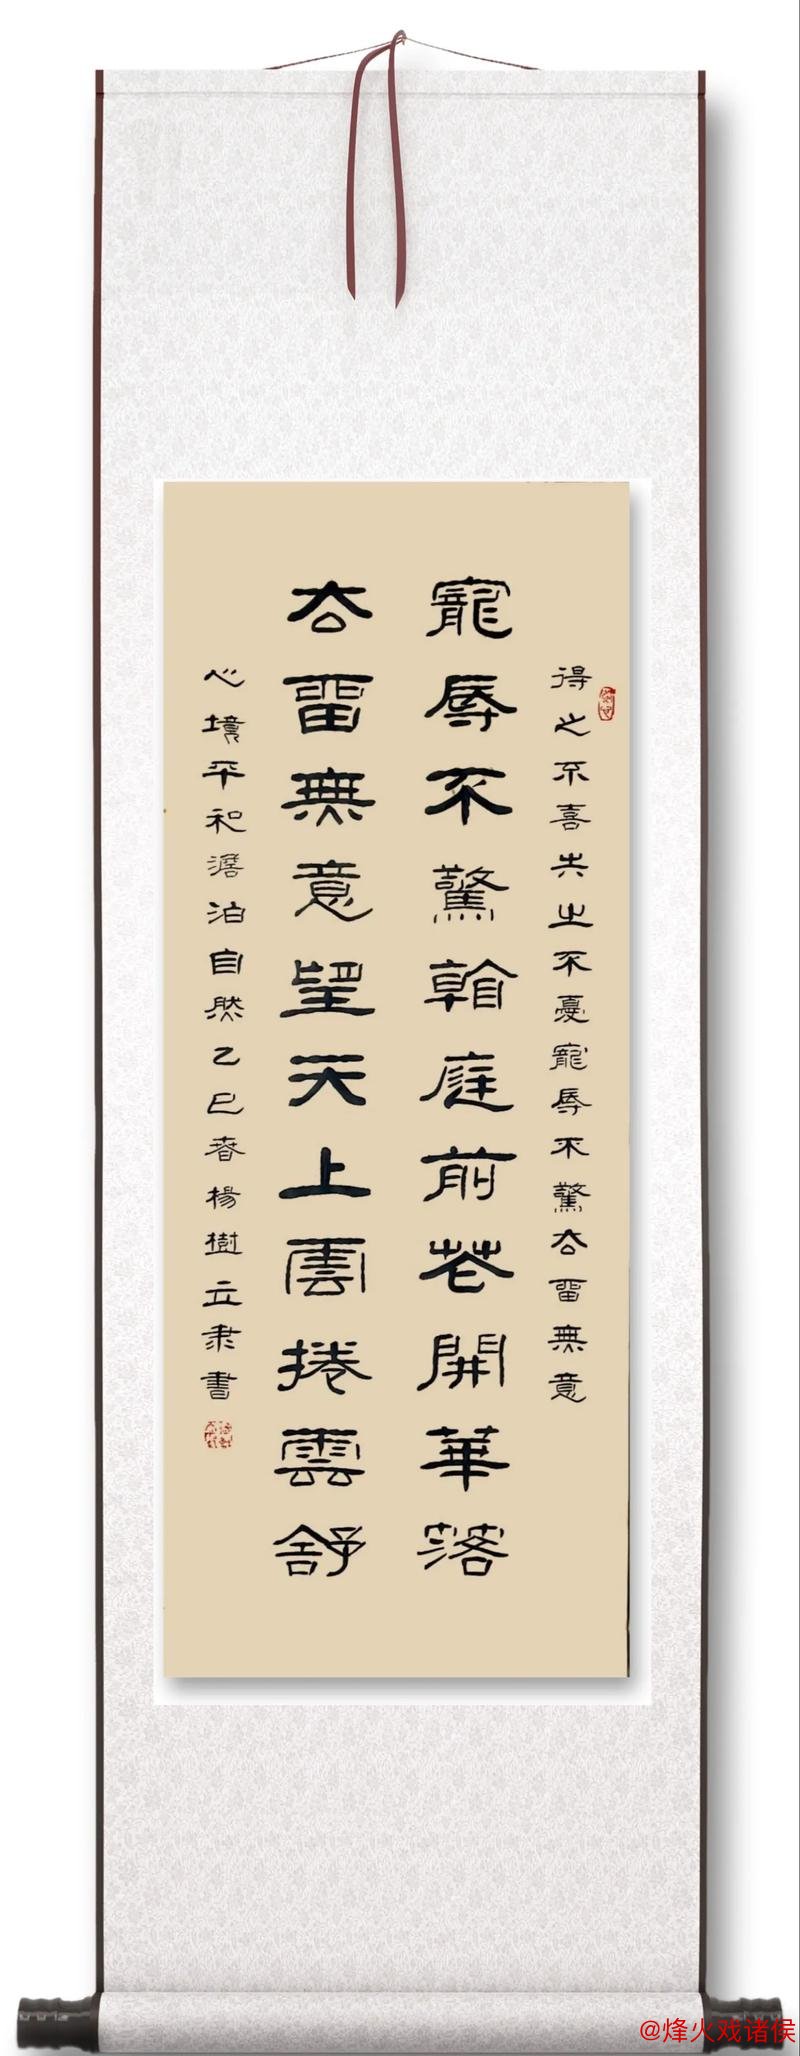 得之不喜失之不憂寵辱不驚去留無意
寵辱不驚看庭前花開華落
去留無意望天上雲捲雲舒
心境平和澹泊自然乙巳春楊樹立隶書
@烽火戏诸侯